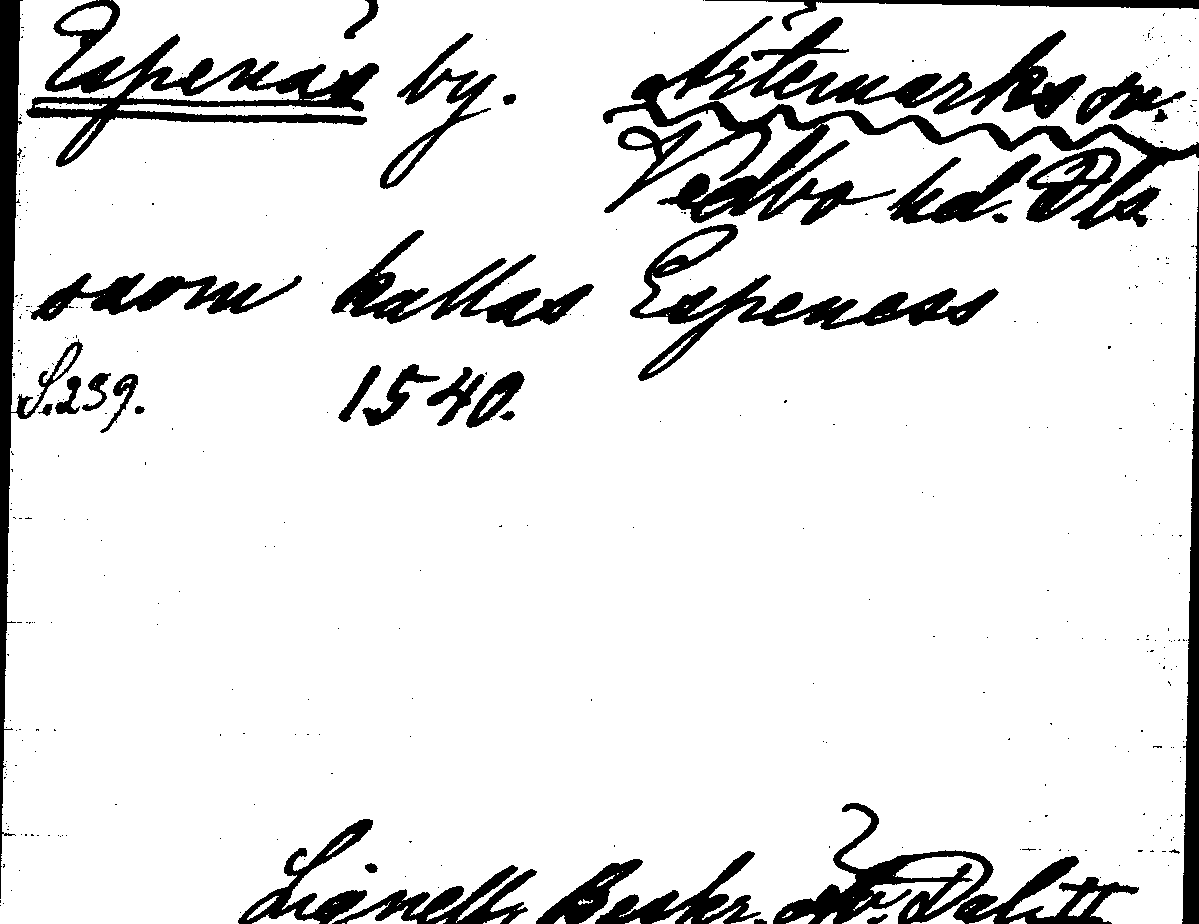 Espenäs by. Ärtemarks sn.
Vedbo hd. Dls.
saom kallas Espeness
S.239. 1540.
Lignell, Beskr. öfv. Dal. II